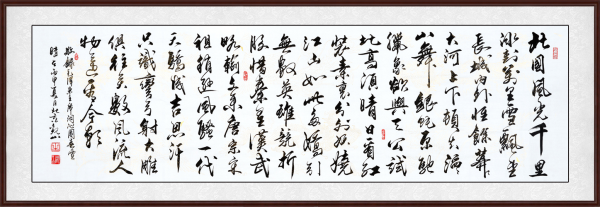 北国風光千里
冰封萬里雪飄望
長城内外惟餘莽
大河上下頓失滔
山舞銀蛇原馳
臘象欲與天公試
比高須晴日看紅
裝素裹分外妖嬈
江山如此多嬌引
無數英雄競折
腰惜秦皇漢武
略輸文采唐宗宋
祖稍遜風騷一代
天驕成吉思汗
只識彎弓射大雕
俱往矣數風流人
物還看今朝
敬錄毛澤東主席沁園春雪
時在丙申夏月